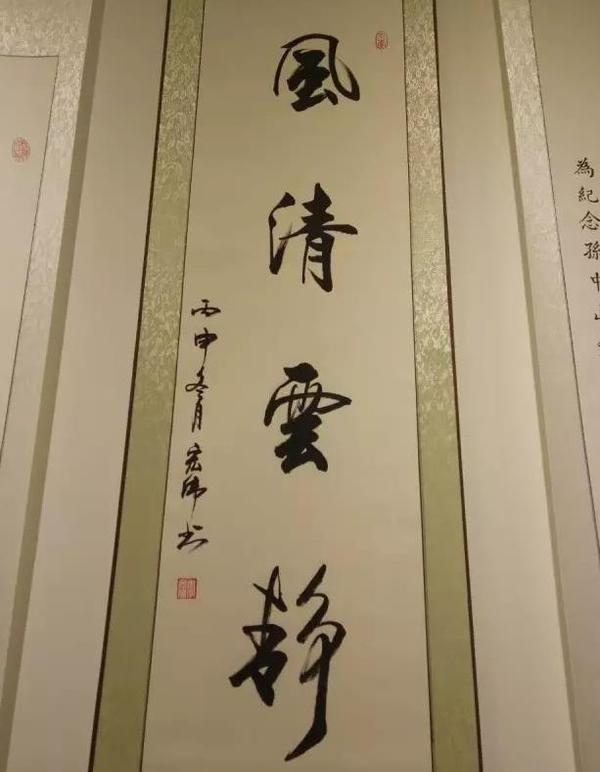 風清雲靜
丙申冬月宏偉書
為紀念孫中山